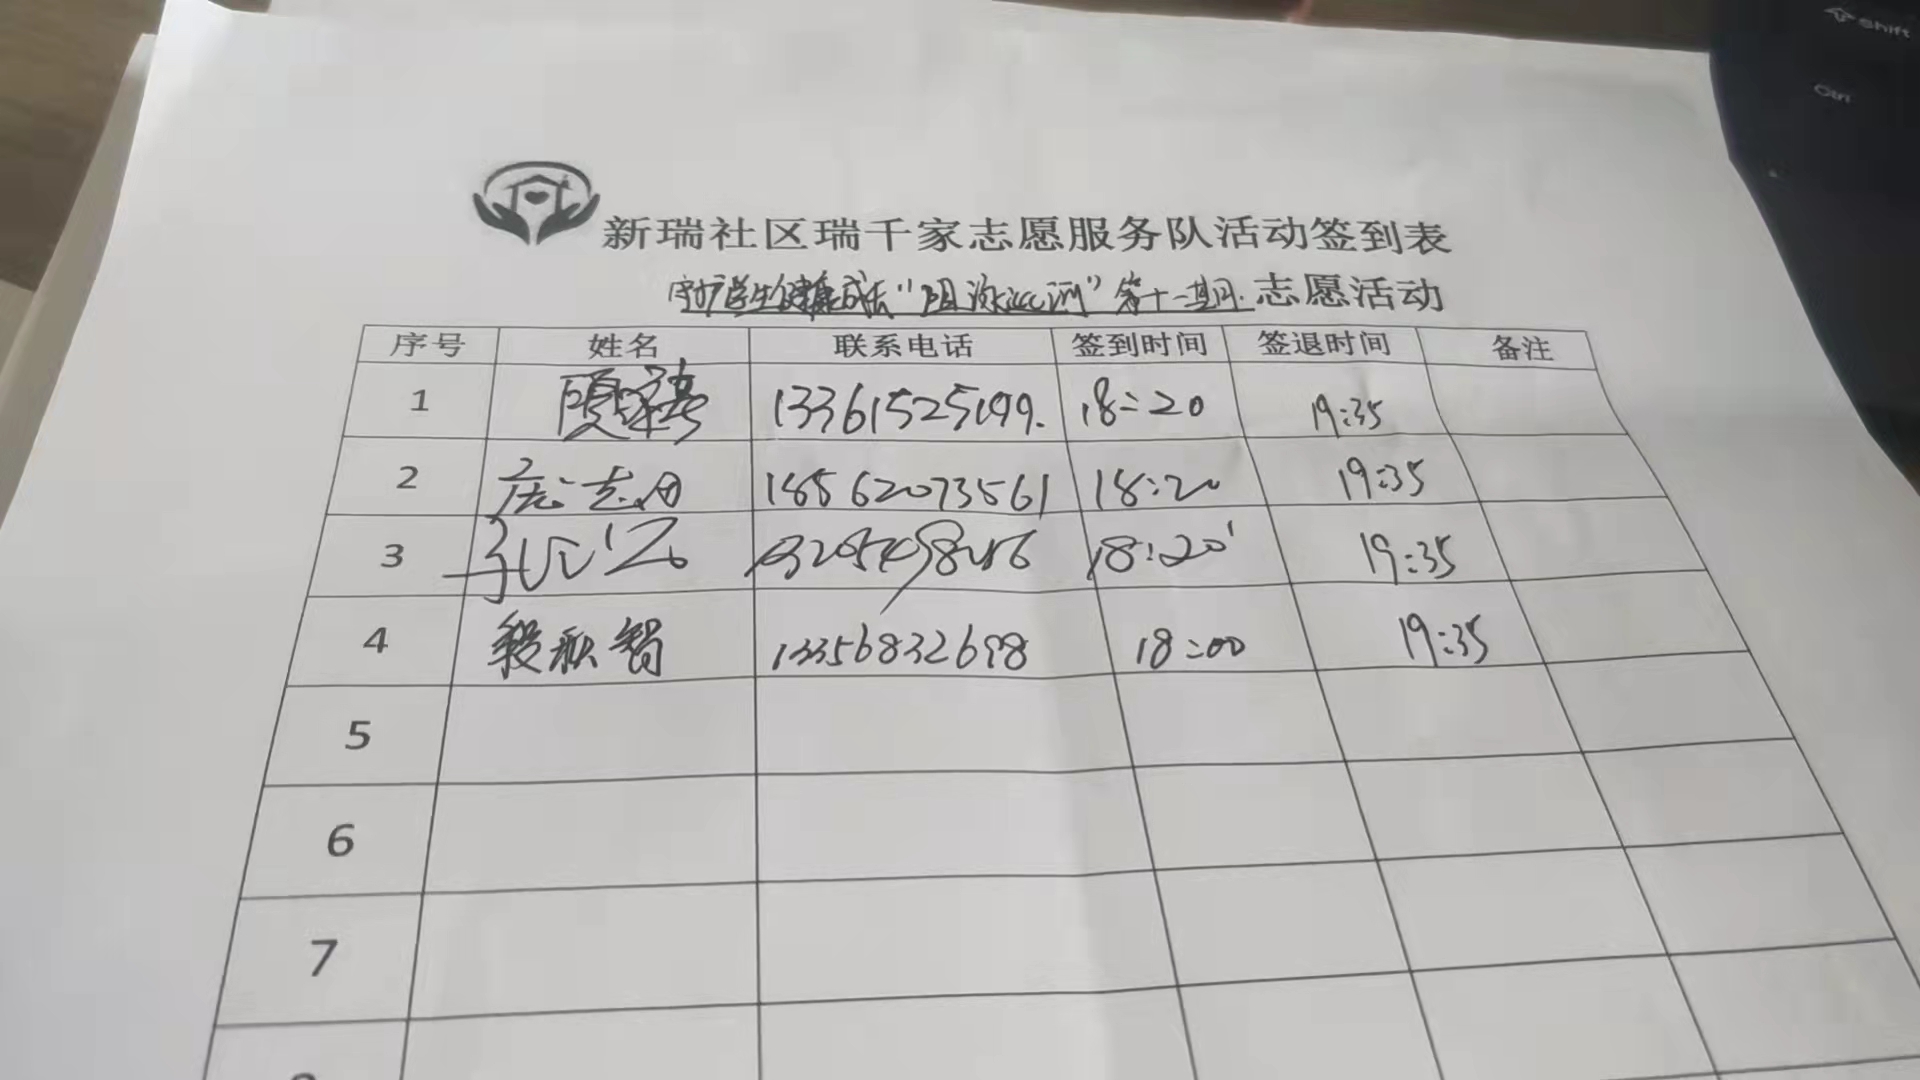 Shift
Ctrl
新瑞社区瑞千家志愿服务队活动签到表
守护学生健康成长“阻泳巡河”第十一期 志愿活动
序号 姓名 联系电话 签到时间 签退时间 备注
1 13361525199. 18:20 19:35
2 庞志丹 18562073561 18:20 19:35
3 18:20 19:35
4 殷秋智 13356832698 18:00 19:35
5
6
7